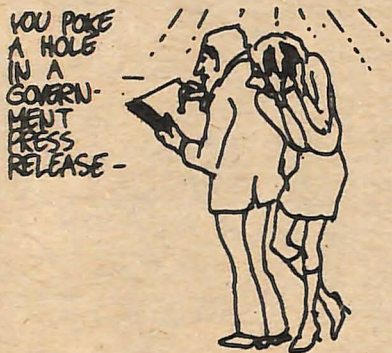 YOU POKE
A HOLE
IN A
GOVERN-
MENT
PRESS
RELEASE -